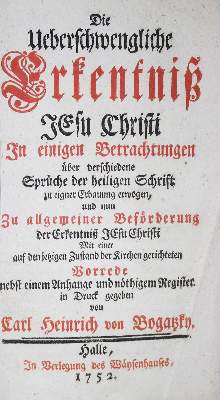 Die
Ueberschwengliche
Erkentniß
JEsu Christi
In einigen Betrachtungen
über verschiedene
Sprüche der heiligen Schrift
zu eigner Erbauung erwogen,
und nun
Zu allgemeiner Beförderung
der Erkentniß JEsu Christi
Mit einer
auf den jetzigen Zustand der Kirchen gerichteten
Vorrede
nebst einem Anhange und nöthigem Register
in Druck gegeben
von
Carl Heinrich von Bogatzky.
Halle,
In Verlegung des Wäysenhauses,
1752.